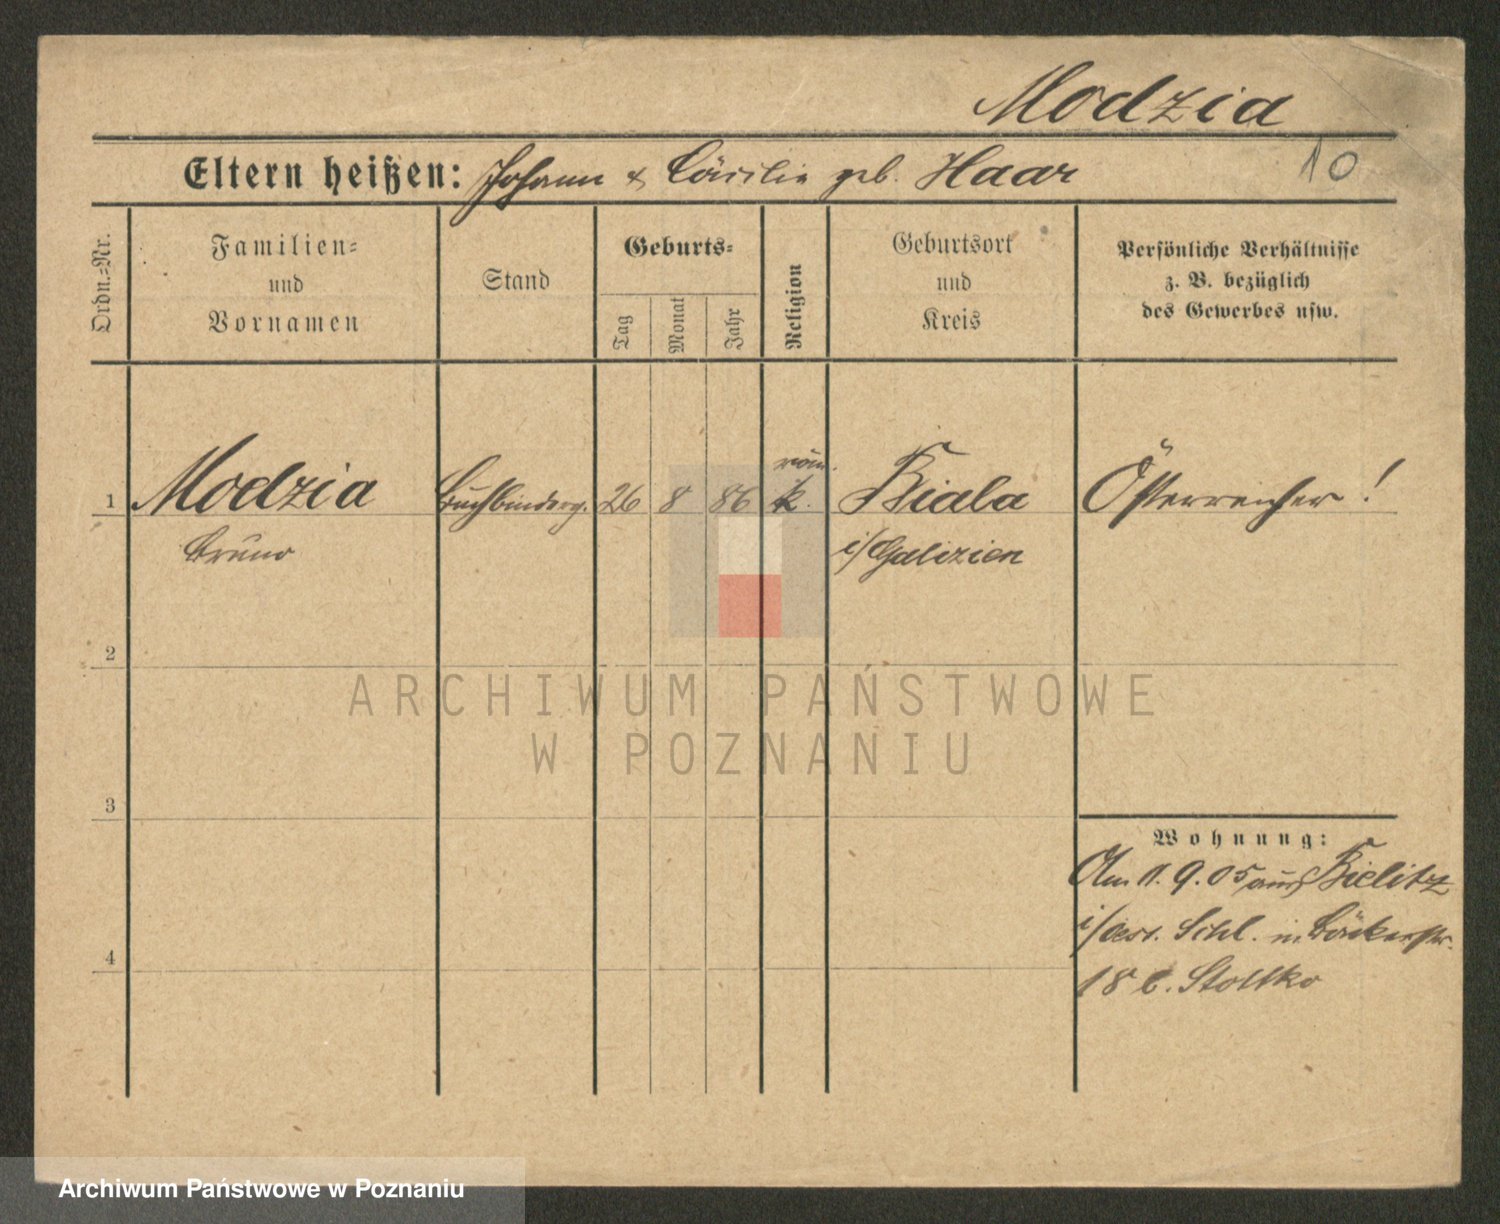 Modzia
Eltern heißen: Johann & Cäcilie geb. Haar
10
Ordn.-Nr.
Familien-
und
Vornamen
Stand
Geburts-
Tag
Monat
Jahr
Religion
Geburtsort
und
Kreis
Persönliche Verhältnisse
z. B. bezüglich
des Gewerbes usw.
röm.
1 Modzia Buchbinderg. 26 8 86 k. Biala Österreicher!
Bruno i/Galizien
2
ARCHIWUM PAŃSTWOWE
W POZNANIU
3
Wohnung:
Am 11.9.05 aus Bielitz
i/öst. Schl. n. Bäckerstr.
4
18 b.
Archiwum Państwowe w Poznaniu